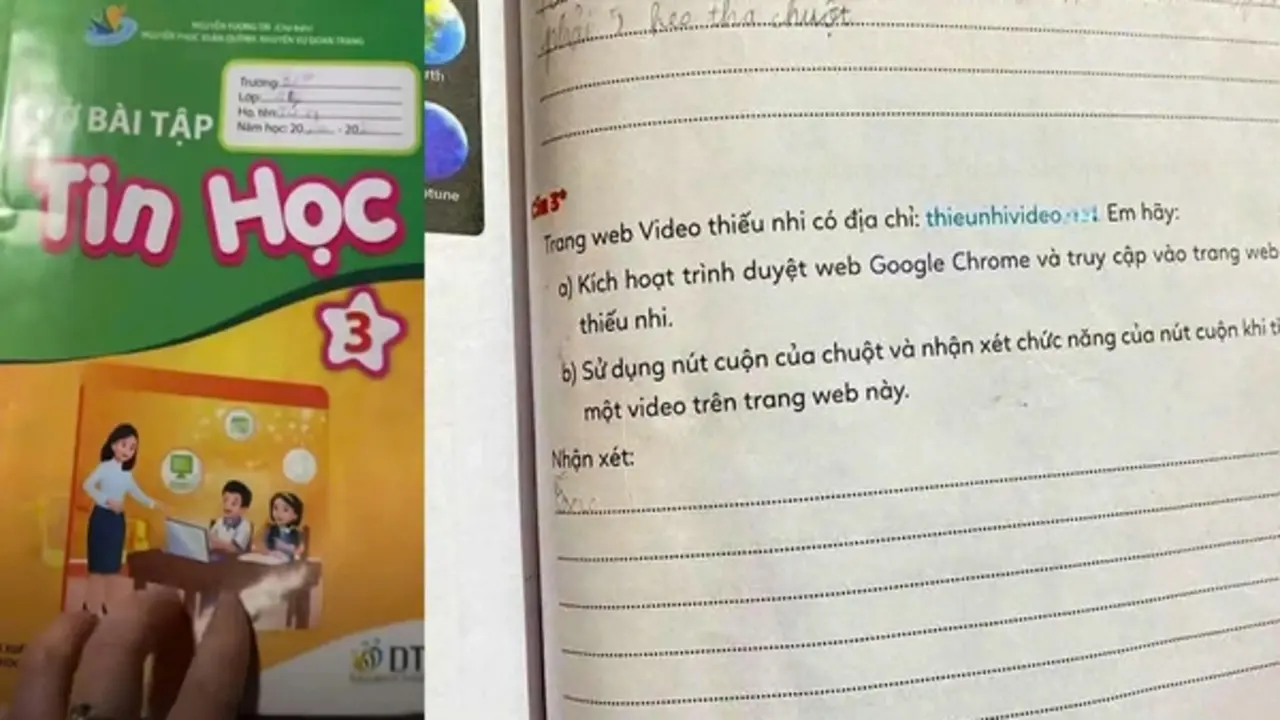 NGUYỄN TƯƠNG TRI
NGUYỄN PHÚC XUÂN QUỲNH, NGUYỄN VŨ ĐOAN TRANG
Trường:
Lớp:
Họ, tên:
Năm học: 20 - 20
BÀI TẬP
Tin Học
3
DT
rth
tune
phải heo thả chuột
Câu 3*
Trang web Video thiếu nhi có địa chỉ: thieunhivideo Em hãy:
a) Kích hoạt trình duyệt web Google Chrome và truy cập vào trang web
thiếu nhi.
b) Sử dụng nút cuộn của chuột và nhận xét chức năng của nút cuộn khi
một video trên trang web này.
Nhận xét: